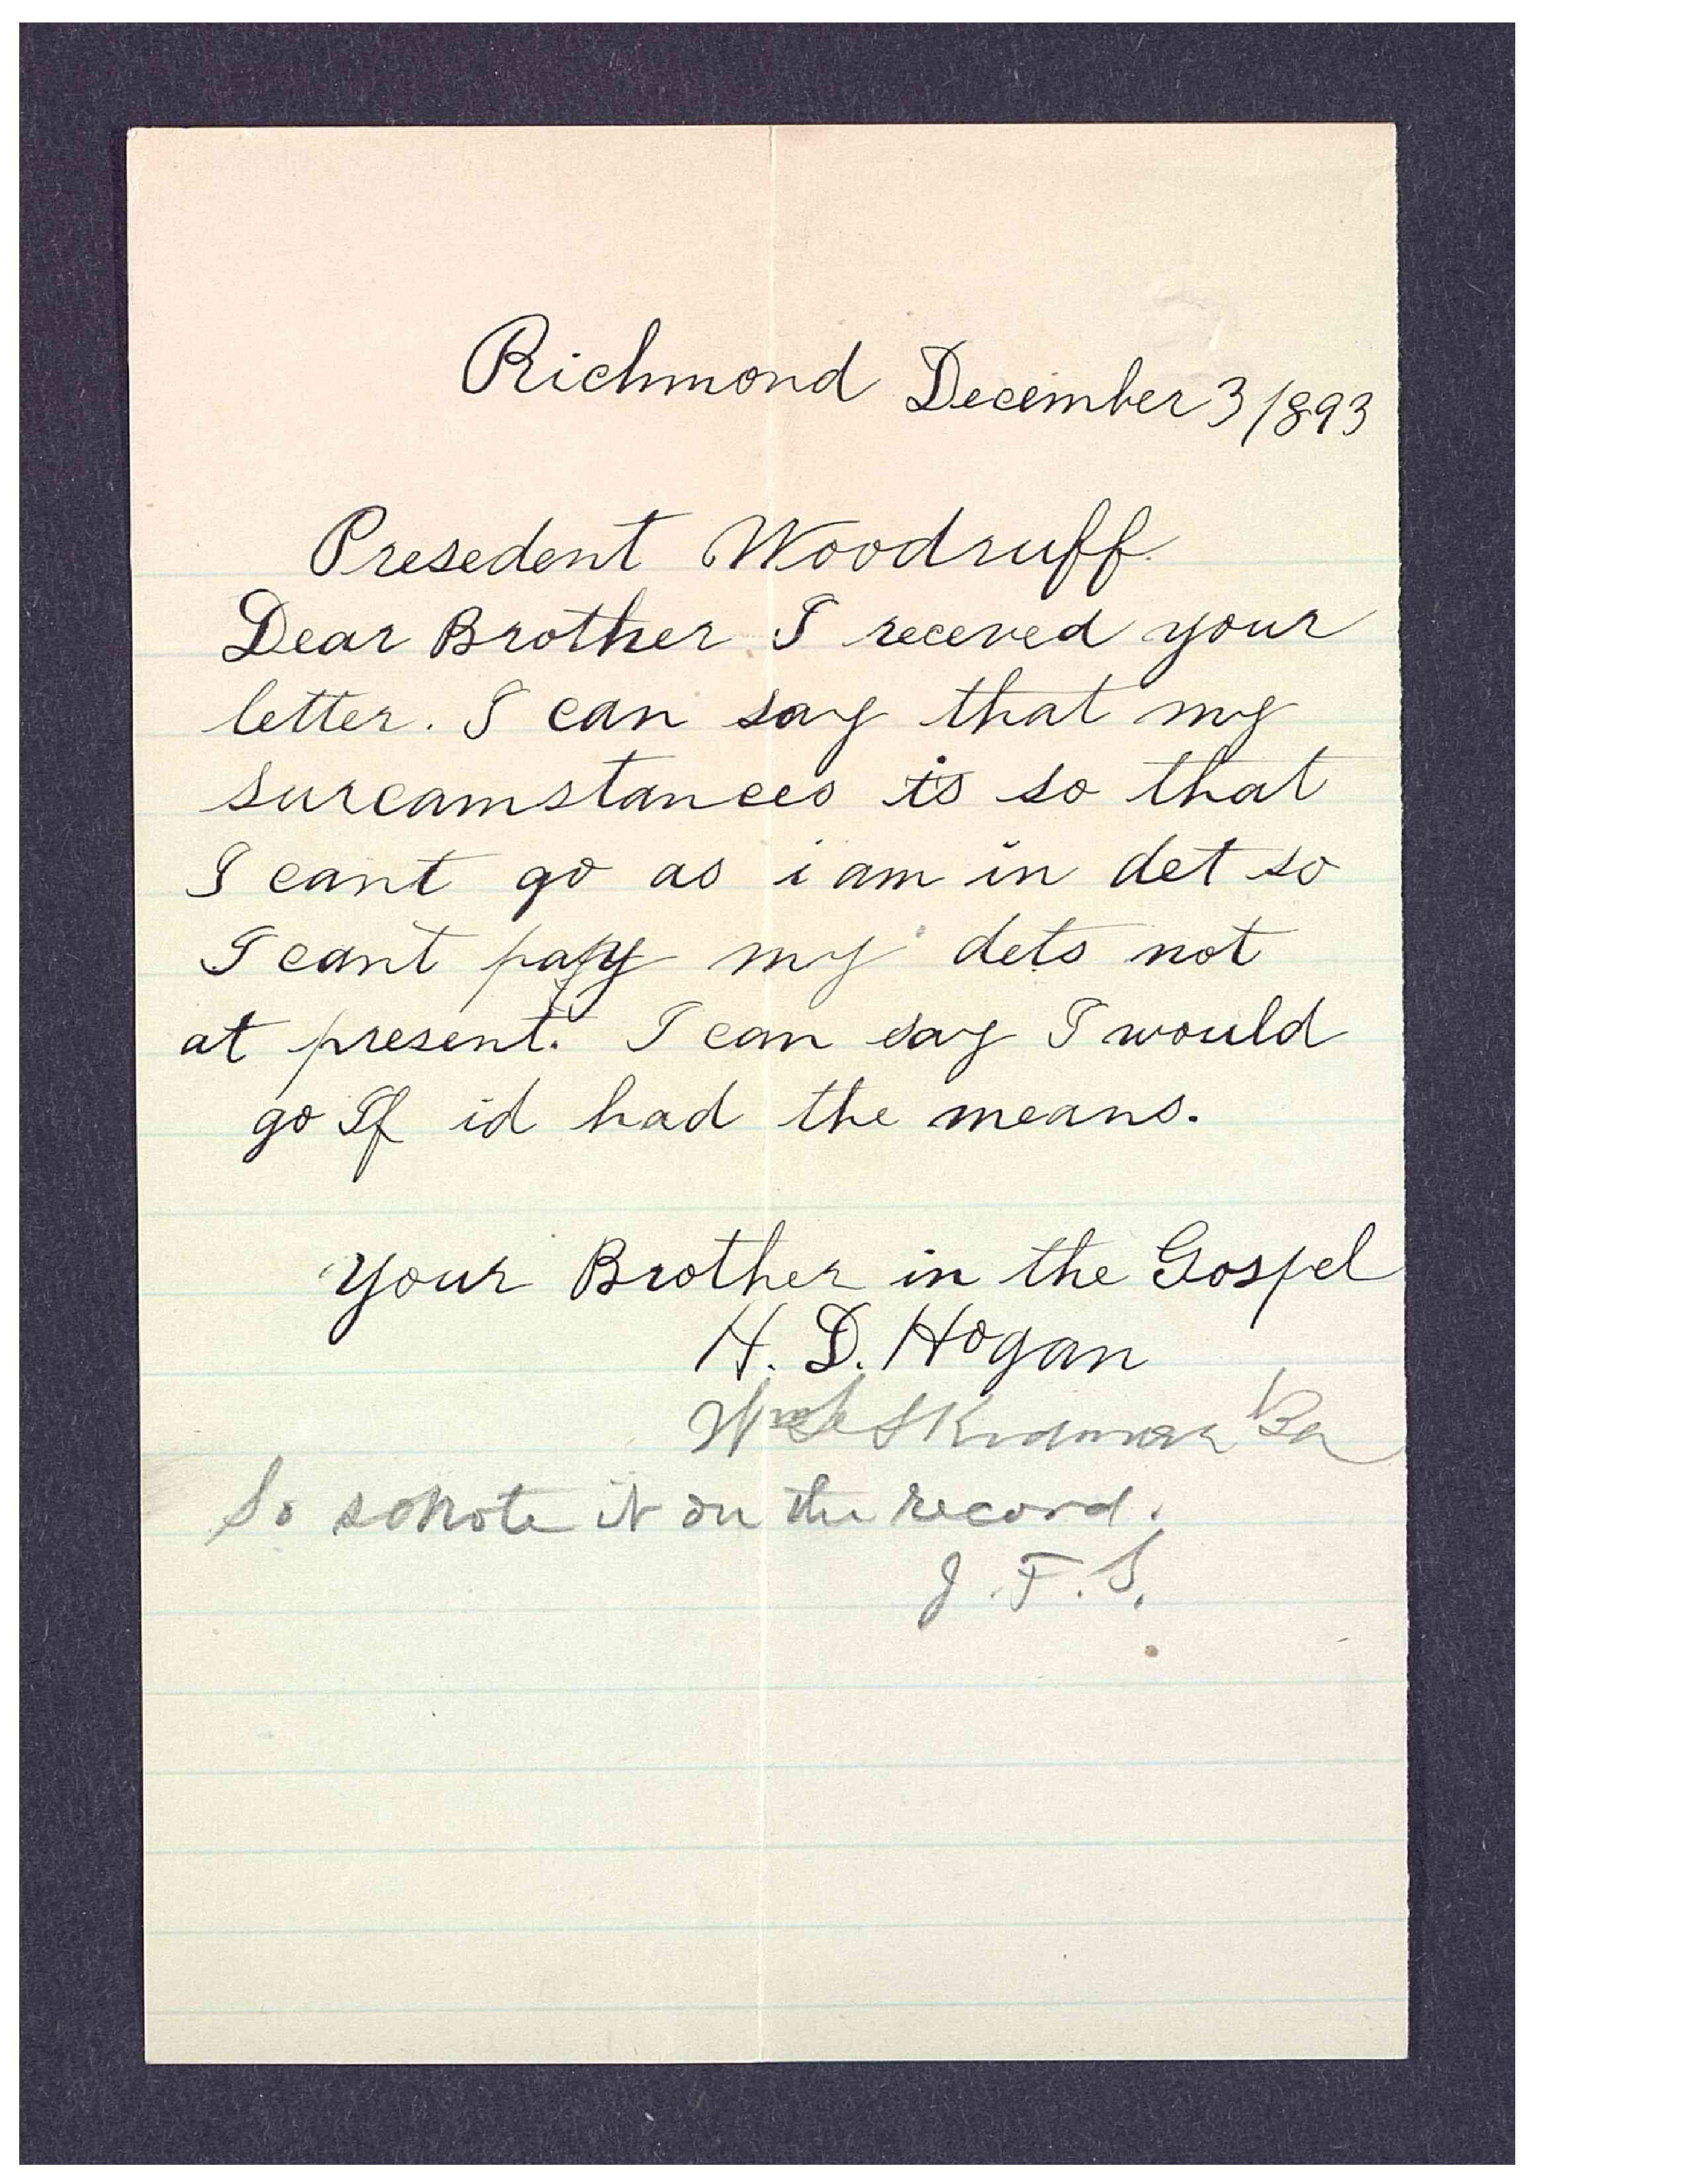 Richmond December 3/893
Presedent Woodruff.
Dear Brother I receved your
letter. I can say that my
surcamstances is so that
I cant go as i am in det so
I cant pay my dets not
at present. I can say I would
go If id had the means.
Your Brother in the Gospel
H. D. Hogan
Skidmore Bp
So note it on the record.
J. F. S.